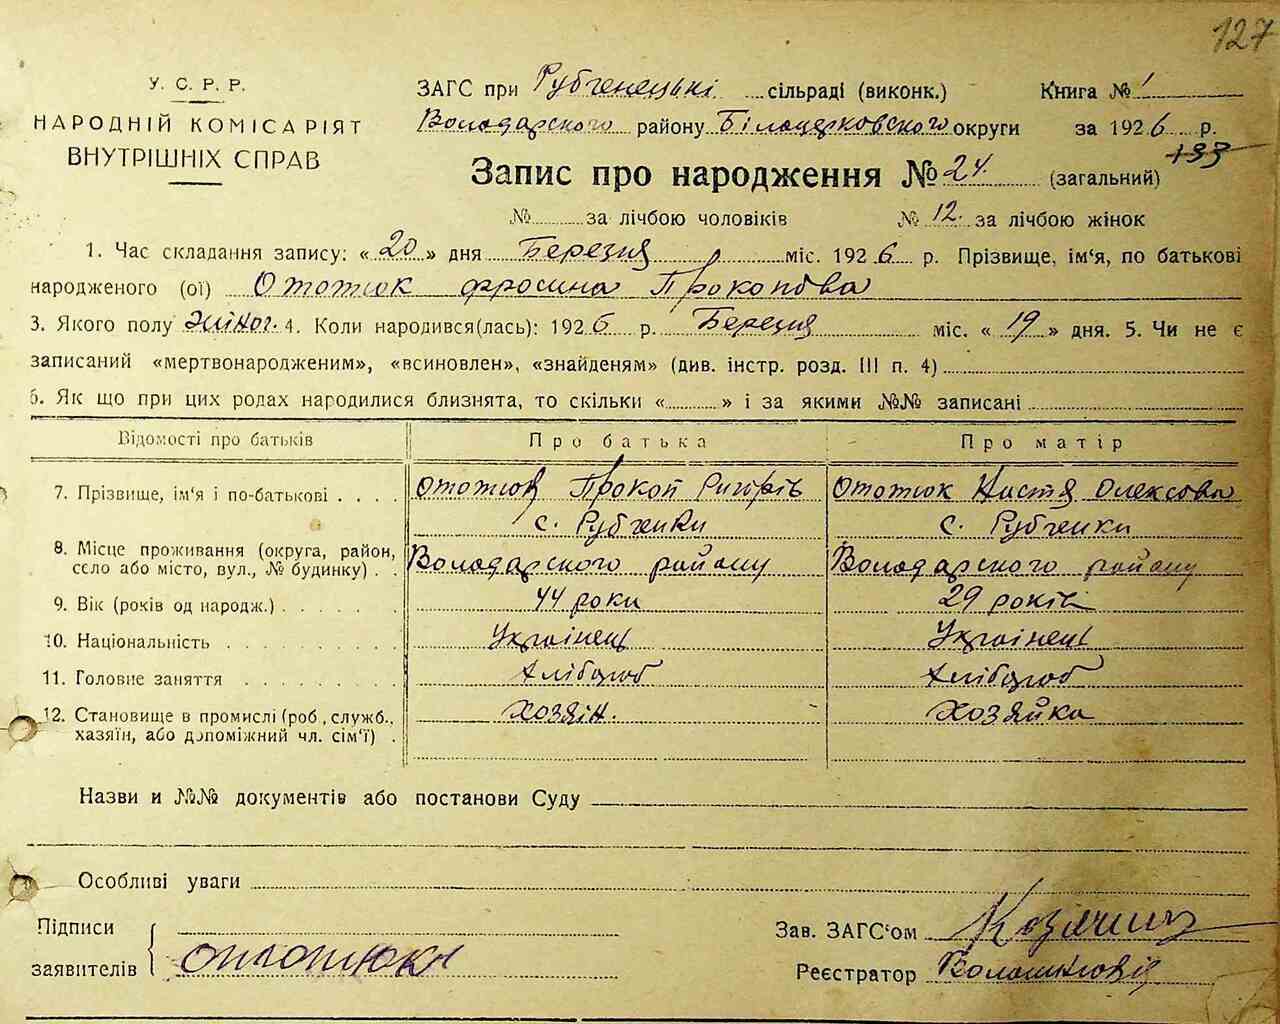 127
У. С. Р. Р.
НАРОДНІЙ КОМІСАРІЯТ
ВНУТРІШНІХ СПРАВ
ЗАГС при Рубченецькі сільраді (виконк.) Книга № 1
Володарского району Білоцерковского округи за 1926 р.
133
Запис про народження № 24. (загальний)
№ за лічбою чоловіків № 12. за лічбою жінок
1. Час складання запису: «20» дня Березня міс. 1926 р. Прізвище, ім'я, по батькові
народженого (ої) Ототюк Фросина Прокопова
3. Якого полу жіноч. 4. Коли народився(лась): 1926 р. Березня міс. «19» дня. 5. Чи не є
записаний «мертвонародженим», «всиновлен», «знайденям» (див. інстр. розд. III п. 4)
6. Як що при цих родах народилися близнята, то скільки «» і за якими №№ записані
Відомості про батьків Про батька Про матір
7. Прізвище, ім'я і по-батькові . . . . Ототюк Прокоп Ригорів Ототюк Настя Олексова
с. Рубченки с. Рубченки
8. Місце проживання (округа, район,
село або місто, вул., № будинку) . . Володарского району Володарского району
9. Вік (років од народж.) . . . . . . 44 роки 29 років
10. Національність . . . . . . . . . Українець Українець
11. Головне заняття . . . . . . . . Хлібороб Хлібороб
12. Становище в промислі (роб., служб., Хозяін. Хозяйка
хазяїн, або допоміжний чл. сім'ї) .
Назви и №№ документів або постанови Суду
Особливі уваги
Підписи
заявителів Ототюк
Зав. ЗАГС'ом
Реєстратор